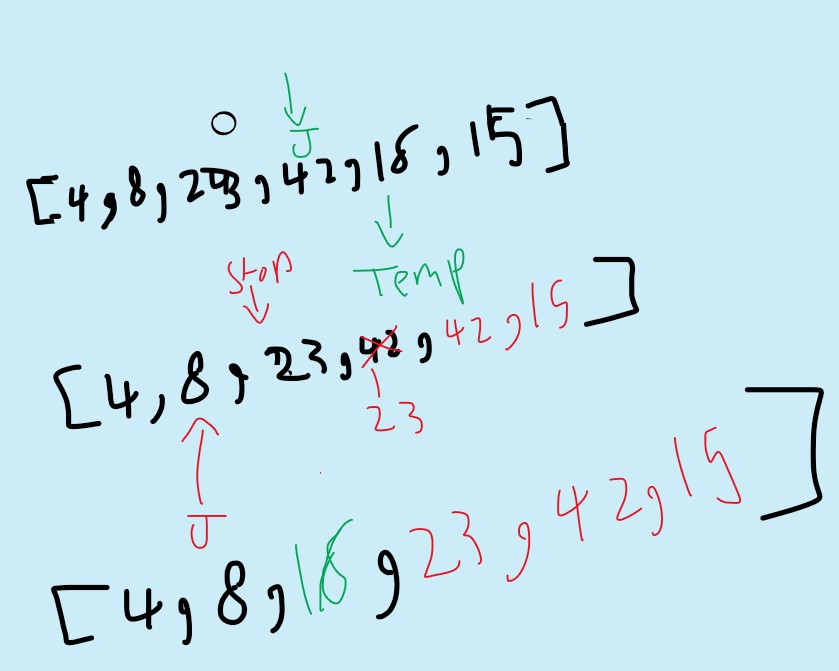 J
[4,8,23,42,16,15]
Temp
Stop
[4,8,23,42,42,15]
23
J
[4,8,16,23,42,15]